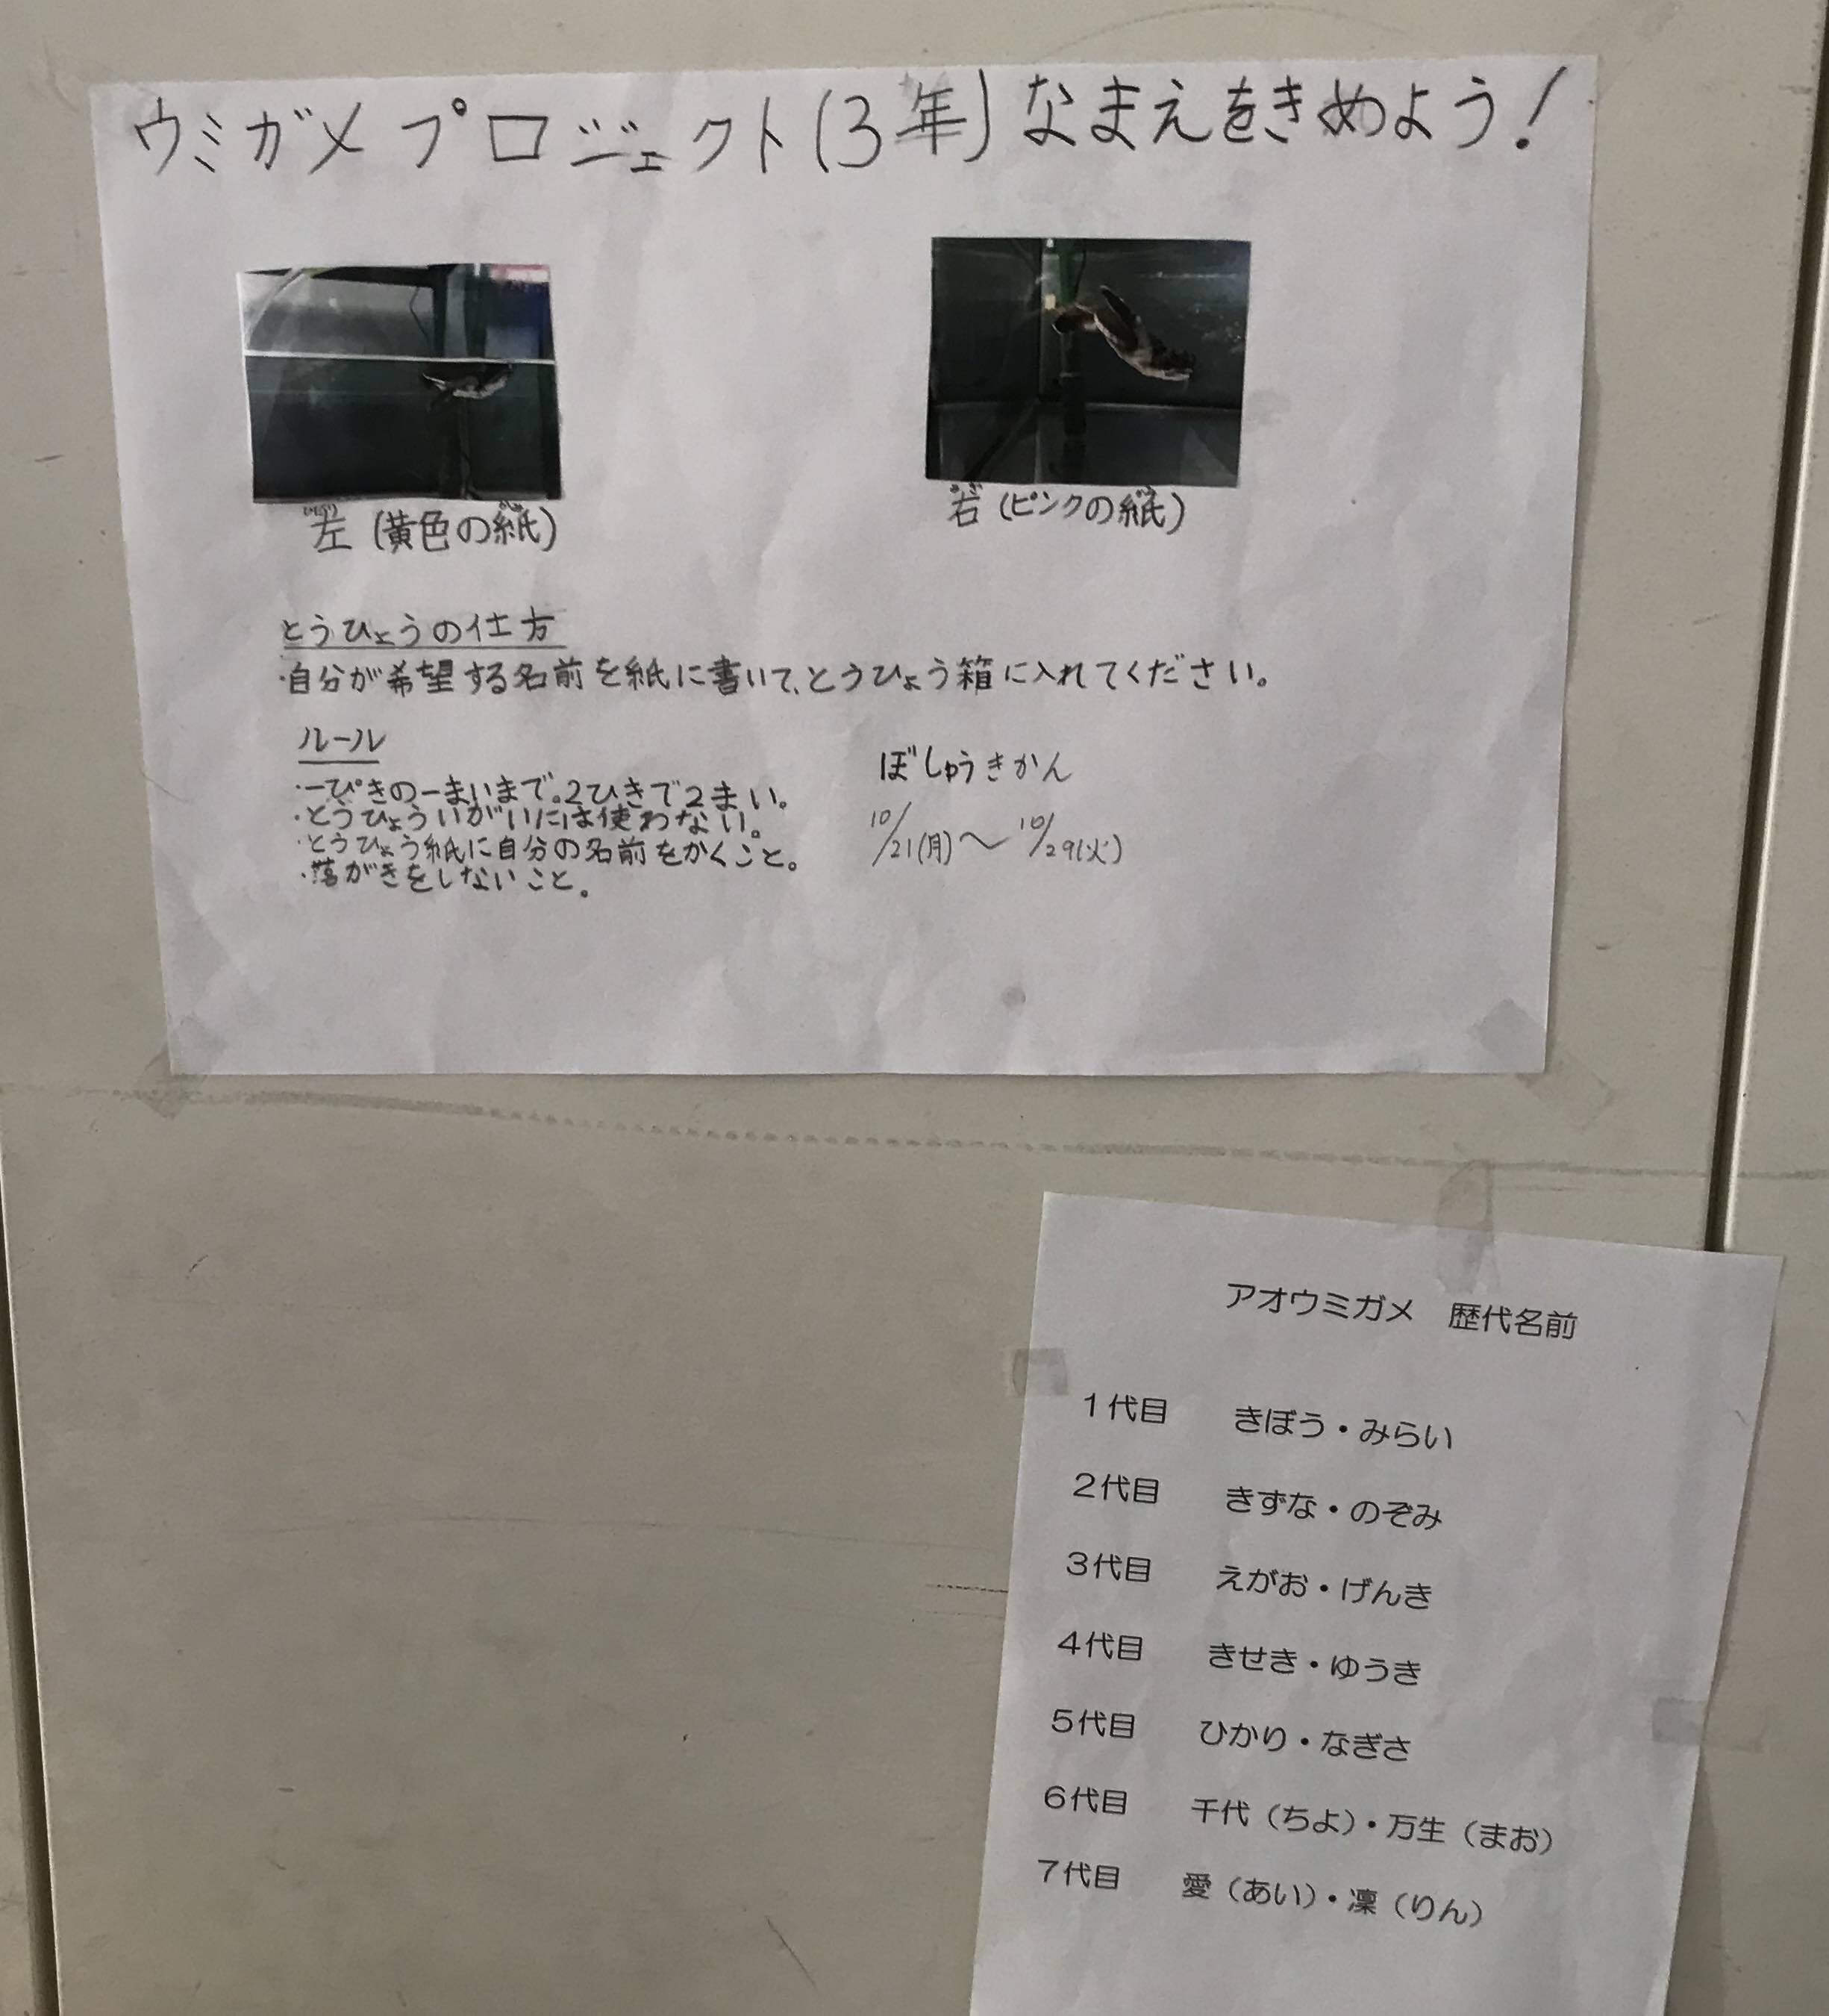 ウミガメプロジェクト(3年)なまえをきめよう!
左(黄色の紙)
右(ピンクの紙)
とうひょうの仕方
・自分が希望する名前を紙に書いて、とうひょう箱に入れてください。
ルール
・一ぴきの一まいまで。2ひきで2まい。
・とうひょういがいには使わない。
・とうひょう紙に自分の名前をかくこと。
・落がきをしないこと。
ぼしゅうきかん
10/21(月)〜10/29(火)
アオウミガメ 歴代名前
1代目 きぼう・みらい
2代目 きずな・のぞみ
3代目 えがお・げんき
4代目 きせき・ゆうき
5代目 ひかり・なぎさ
6代目 千代(ちよ)・万生(まお)
7代目 愛(あい)・凜(りん)